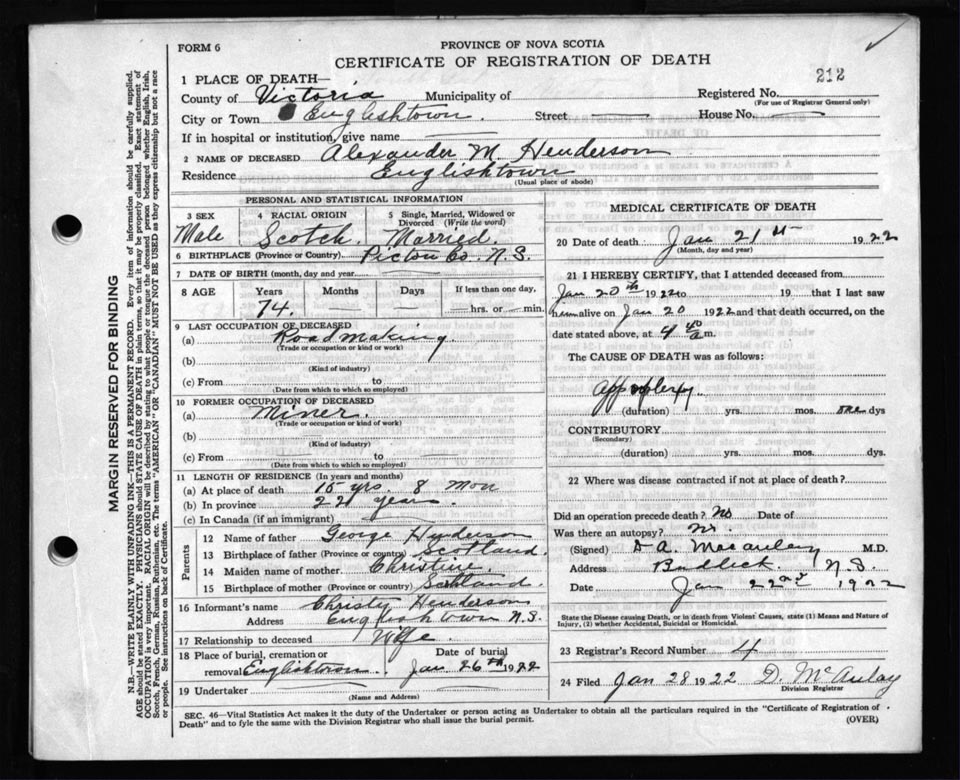 FORM 6
PROVINCE OF NOVA SCOTIA
CERTIFICATE OF REGISTRATION OF DEATH
212
1 PLACE OF DEATH—
County of Victoria Municipality of Registered No.
(For use of Registrar General only)
City or Town Englishtown. Street House No.
If in hospital or institution, give name
2 NAME OF DECEASED Alexander M Henderson
Residence Englishtown
(Usual place of abode)
PERSONAL AND STATISTICAL INFORMATION
3 SEX
Male
4 RACIAL ORIGIN
Scotch.
5 Single, Married, Widowed or Divorced (Write the word)
Married.
6 BIRTHPLACE (Province or Country) Pictou Co. N.S.
7 DATE OF BIRTH (month, day and year)
8 AGE Years Months Days If less than one day,
74. hrs. or min.
9 LAST OCCUPATION OF DECEASED
(a) Roadmaking.
(Trade or occupation or kind or work)
(b)
(Kind of industry)
(c) From to
(Date from which to which so employed)
10 FORMER OCCUPATION OF DECEASED
(a) Miner.
(Trade or occupation or kind of work)
(b)
(Kind of industry)
(c) From to
(Date from which to which so employed)
11 LENGTH OF RESIDENCE (In years and months)
(a) At place of death 15 yrs. 8 Mon
(b) In province 22 years.
(c) In Canada (if an immigrant)
Parents
12 Name of father George Henderson
13 Birthplace of father (Province or country) Scotland.
14 Maiden name of mother. Christine.
15 Birthplace of mother (Province or country) Scotland.
16 Informant's name Christy Henderson
Address Englishtown N.S.
17 Relationship to deceased Wife
18 Place of burial, cremation or removal Englishtown. Date of burial Jan. 26th 1922
19 Undertaker
(Name and Address)
MEDICAL CERTIFICATE OF DEATH
20 Date of death Jan 21st 1922
(Month, day and year)
21 I HEREBY CERTIFY, that I attended deceased from
Jan 20th 1922 to 19 that I last saw
him alive on Jan 20 1922 and that death occurred, on
date stated above, at 4 a m.
The CAUSE OF DEATH was as follows:
Appoplexy
(duration) yrs. mos. one dys
CONTRIBUTORY
(Secondary)
(duration) yrs. mos. dys.
22 Where was disease contracted if not at place of death?
Did an operation precede death? No Date of
Was there an autopsy? No.
(Signed) D A. Macaulay M.D.
Address Baddeck N.S.
Date Jan 22nd 1922
State the Disease causing Death, or in Death from Violent Causes, state (1) Means and Nature of Injury, (2) whether Accidental, Suicidal or Homicidal.
23 Registrar's Record Number 4
24 Filed Jan 28 1922 D. McAulay
Division Registrar
SEC. 46—Vital Statistics Act makes it the duty of the Undertaker or person acting as Undertaker to obtain all the particulars required in the "Certificate of Registration of Death" and to fyle the same with the Division Registrar who shall issue the burial permit.
(OVER)
MARGIN RESERVED FOR BINDING
N.B.—WRITE PLAINLY WITH UNFADING INK—THIS IS A PERMANENT RECORD. Every item of information should be carefully supplied.
AGE should be stated EXACTLY. PHYSICIANS should STATE CAUSE OF DEATH in plain terms, so that it may be properly classified. Exact statement of
OCCUPATION is very important. RACIAL ORIGIN will be described by stating to what people or tongue the deceased person belonged whether English, Irish,
Scotch, French, German, Russian, Ruthenian, etc. The terms "AMERICAN" OR "CANADIAN" MUST NOT BE USED as they express citizenship but not a race
or people. See instructions on back of Certificate.